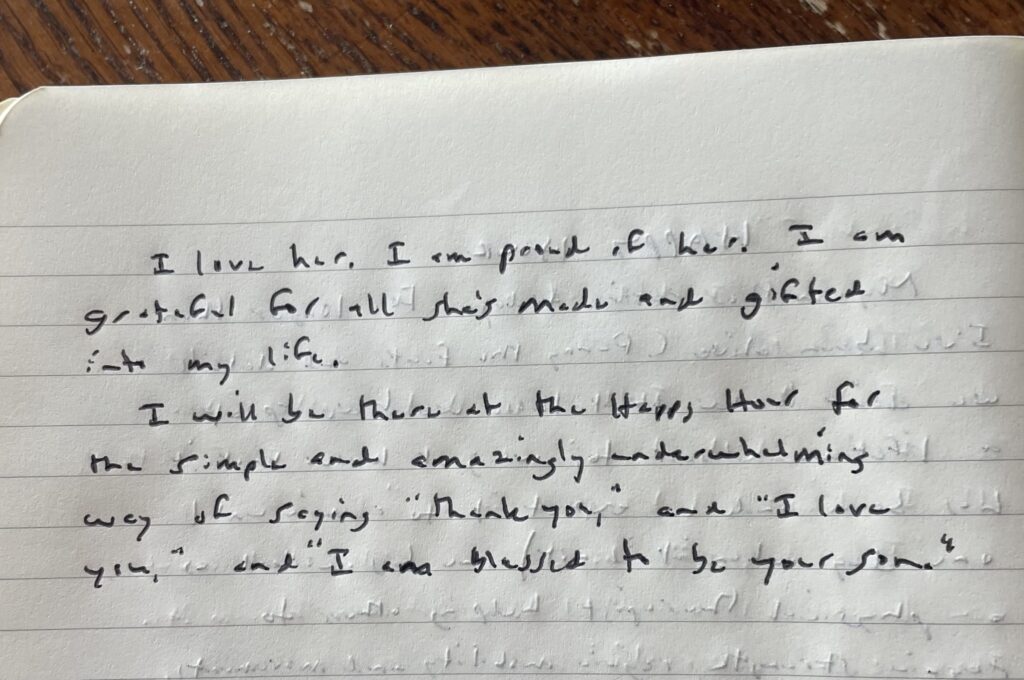 I love her. I am proud of her. I am
grateful for all she's made and gifted
into my life.
I will be there at the Happy Hour for
the simple and amazingly underwhelming
way of saying "thank you," and "I love
you," and "I am blessed to be your son."